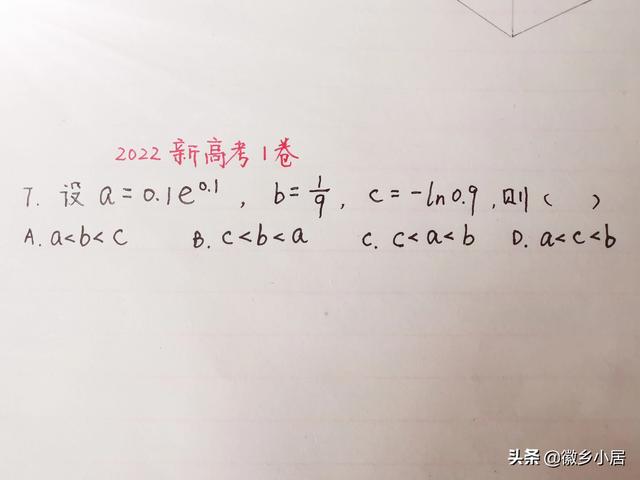 2022 新高考1卷
7. 设 a=0.1e^0.1, b=1/9, c=-ln0.9, 则( )
A. a<b<c B. c<b<a C. c<a<b D. a<c<b
头条 @徽乡小居